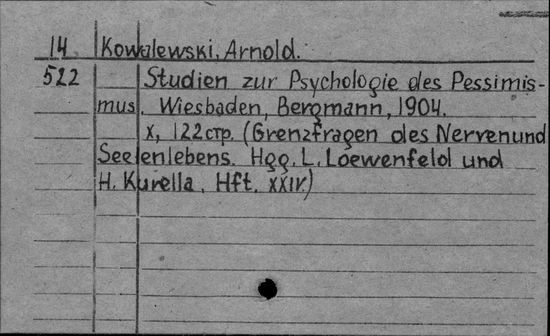 14 Kowalewski, Arnold.
522 Studien zur Psychologie des Pessimis-
mus. Wiesbaden, Bergmann, 1904.
X, 122 стр. (Grenzfragen des Nerven und
Seelenlebens. Hgg. L. Loewenfeld und
H. Kurella. Hft. XXIV)